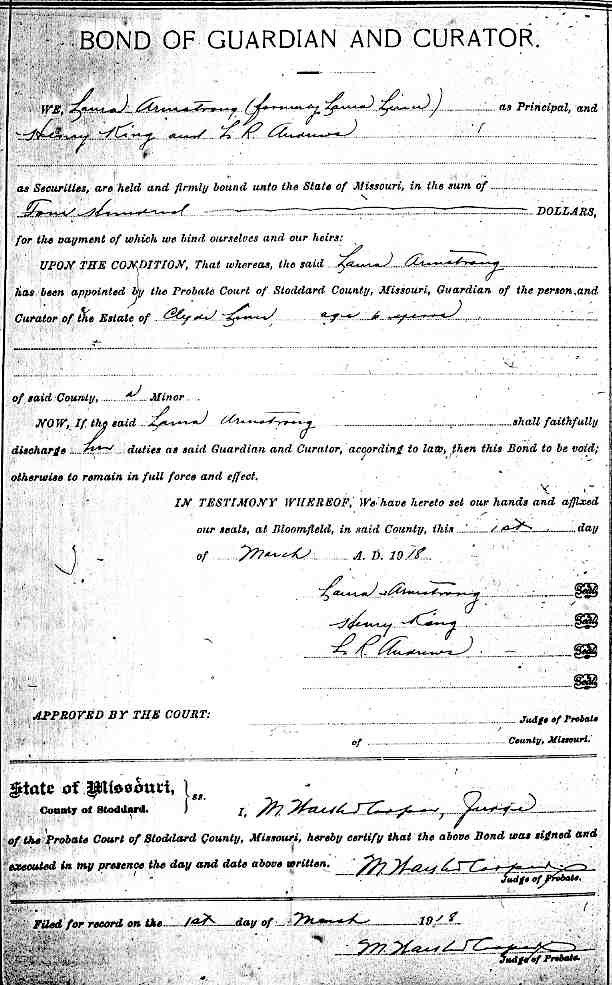 BOND OF GUARDIAN AND CURATOR.
WE, Laura Armstrong (formerly Laura Linn) as Principal, and
Henry King and L R Andrews
as Securities, are held and firmly bound unto the State of Missouri, in the sum of
Four Hundred DOLLARS,
for the payment of which we bind ourselves and our heirs:
UPON THE CONDITION, That whereas, the said Laura Armstrong
has been appointed by the Probate Court of Stoddard County, Missouri, Guardian of the person and
Curator of the Estate of Clyde Linn age 6 years
of said County, a Minor
NOW, If the said Laura Armstrong shall faithfully
discharge her duties as said Guardian and Curator, according to law, then this Bond to be void;
otherwise to remain in full force and effect.
IN TESTIMONY WHEREOF, We have hereto set our hands and affixed
our seals, at Bloomfield, in said County, this 1st day
of March A. D. 1918
Laura Armstrong Seal
Henry King Seal
L. R. Andrews Seal
Seal
APPROVED BY THE COURT: Judge of Probate
of County, Missouri.
State of Missouri,
County of Stoddard. } ss.
I, M. Cooper, Judge
of the Probate Court of Stoddard County, Missouri, hereby certify that the above Bond was signed and
executed in my presence the day and date above written. M. Cooper
Judge of Probate.
Filed for record on the 1st day of March 1918
M. Cooper
Judge of Probate.